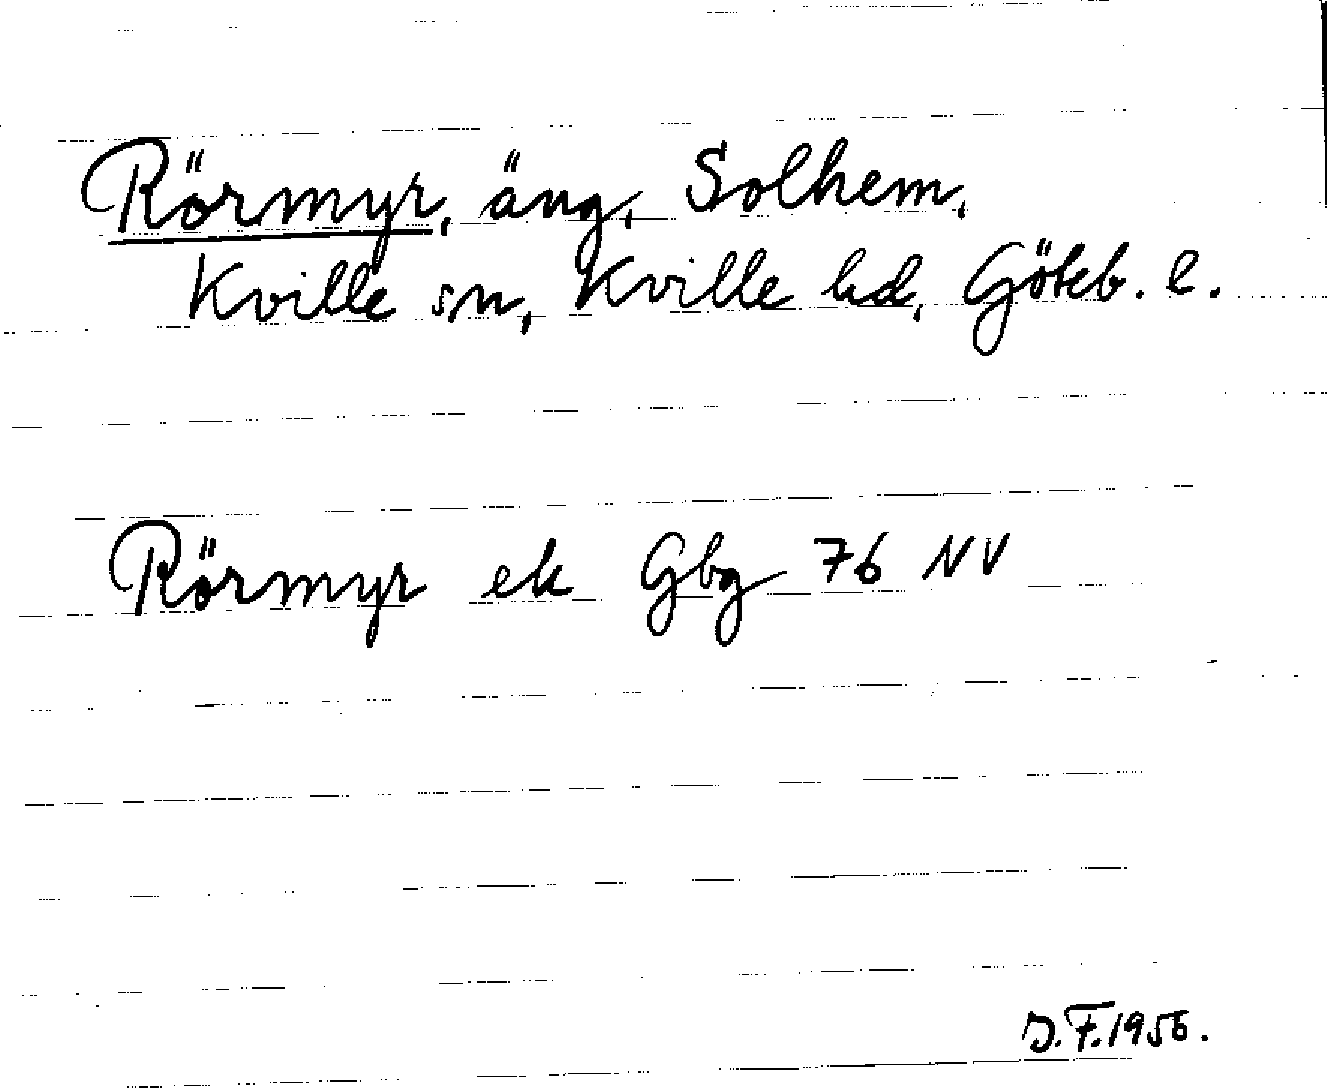 Rörmyr, äng, Solhem,
Kville sn, Kville hd, Göteb. l.
Rörmyr ek Gbg 76 NV
D.F. 1956.